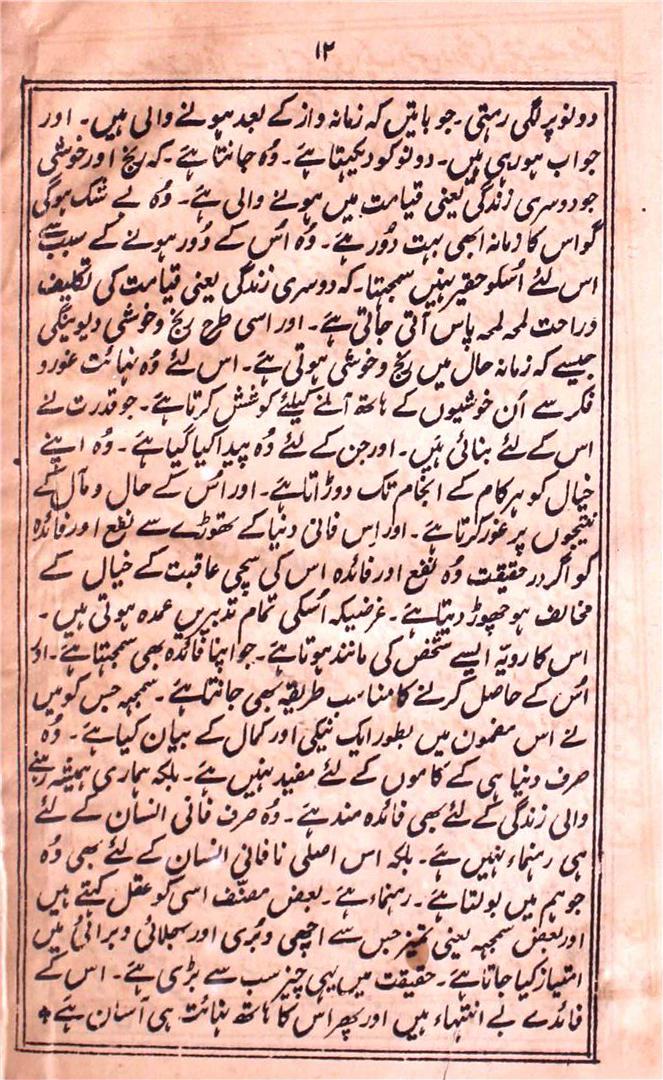 ۱۲
دونو پر لگی رہتی۔ جو باتیں کہ زمانہ دراز کے بعد ہونے والی ہیں۔ اور
جو اب ہو رہی ہیں۔ دونو کو دیکہتا ہے۔ وُہ جانتا ہے۔ کہ رنج اور خوشی
جو دوسری زندگی یعنی قیامت میں ہونے والی ہے۔ وُہ بے شک ہوگی
گو اس کا زمانہ ابھی بہت دُور ہے۔ وُہ اُس کے دُور ہونے کے سبب سے
اس لئے اُسکو حقیر نہیں سمجہتا۔ کہ دوسری زندگی یعنی قیامت کی تکلیف
و راحت لمحہ لمحہ پاس آتی جاتی ہے۔ اور اسی طرح رنج و خوشی دیویگی
جیسے کہ زمانہ حال میں رنج و خوشی ہوتی ہے۔ اس لئے وُہ نہائت غور و
فکر سے اُن خوشیوں کے ہاتھ آنے کیلئے کوشش کرتا ہے۔ جو قدرت نے
اس کے لئے بنائی ہیں۔ اور جن کے لئے وُہ پیدا کیا گیا ہے۔ وُہ اپنے
خیال کو ہر کام کے انجام تک دوڑاتا ہے۔ اور اُس کے حال و مآل کے
نتیجوں پر غور کرتا ہے۔ اور اِس فانی دنیا کے تھوڑے سے نفع اور فائدہ
کو اگر درحقیقت وُہ نفع اور فائدہ اس کی سچی عاقبت کے خیال کے
مخالف ہو چھوڑ دیتا ہے۔ غرضیکہ اُسکی تمام تدبیریں عمدہ ہوتی ہیں۔
اس کا رویّہ ایسے شخص کی مانند ہوتا ہے۔ جو اپنا فائدہ بھی سمجہتا ہے۔ اور
اُس کے حاصل کرنے کا مناسب طریقہ بھی جانتا ہے۔ سمجہہ جس کو میں
نے اس مضمون میں بطور ایک نیکی اور کمال کے بیان کیا ہے۔ وُہ
صرف دنیا ہی کے کاموں کے لئے مفید نہیں ہے۔ بلکہ ہماری ہمیشہ رہنے
والی زندگی کے لئے بھی فائدہ مند ہے۔ وُہ صرف فانی انسان کے لئے
ہی رہنماء نہیں ہے۔ بلکہ اس اصلی نافانی انسان کے لئے بھی وُہ
جو ہم میں بولتا ہے۔ رہنماء ہے۔ بعض مصنّف اسی کو عقل کہتے ہیں
اور بعض سمجہہ یعنی تمیز جس سے اچھی و بُری اور بھلائی و برائی میں
امتیاز کیا جاتا ہے۔ حقیقت میں یہی چیز سب سے بڑی ہے۔ اس کے
فائدے بے انتہاء ہیں اور پھر اس کا ہاتھ نہائت ہی آسان ہے *